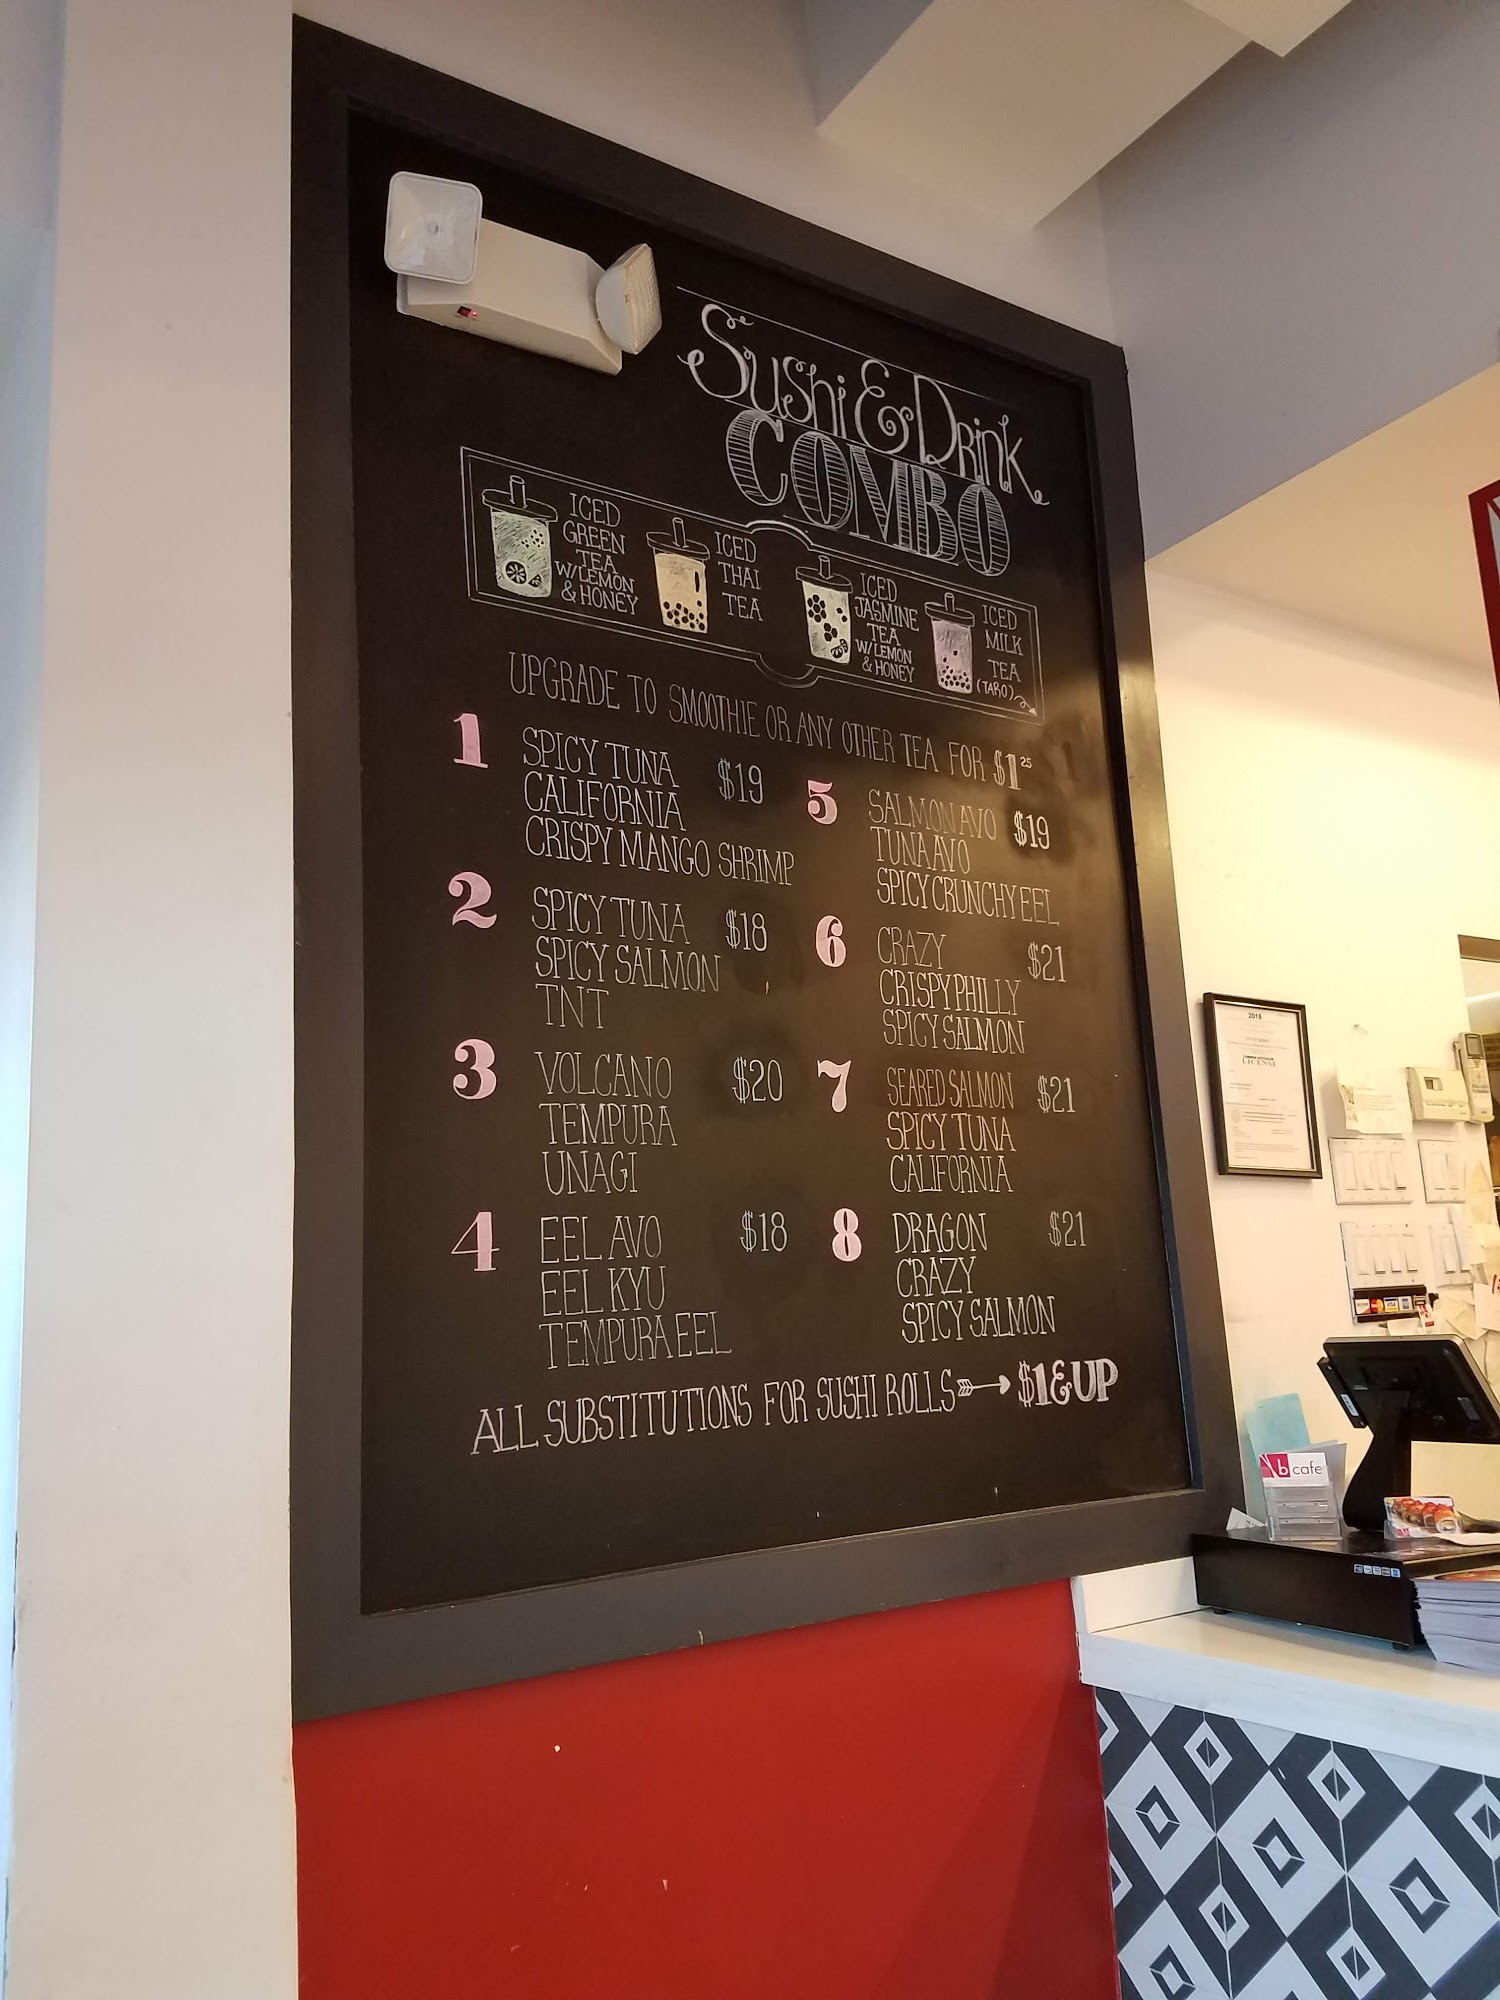 Sushi & Drink
COMBO
ICED
GREEN
TEA
W/LEMON
& HONEY
ICED
THAI
TEA
ICED
JASMINE
TEA
W/LEMON
& HONEY
ICED
MILK
TEA
(TARO)
UPGRADE TO SMOOTHIE OR ANY OTHER TEA FOR $1 25
1 SPICY TUNA $19
CALIFORNIA
CRISPY MANGO SHRIMP
2 SPICY TUNA $18
SPICY SALMON
TNT
3 VOLCANO $20
TEMPURA
UNAGI
4 EEL AVO $18
EEL KYU
TEMPURA EEL
5 SALMON AVO $19
TUNA AVO
SPICY CRUNCHY EEL
6 CRAZY $21
CRISPY PHILLY
SPICY SALMON
7 SEARED SALMON $21
SPICY TUNA
CALIFORNIA
8 DRAGON $21
CRAZY
SPICY SALMON
ALL SUBSTITUTIONS FOR SUSHI ROLLS → $1 & UP
2018
LICENSE
b cafe